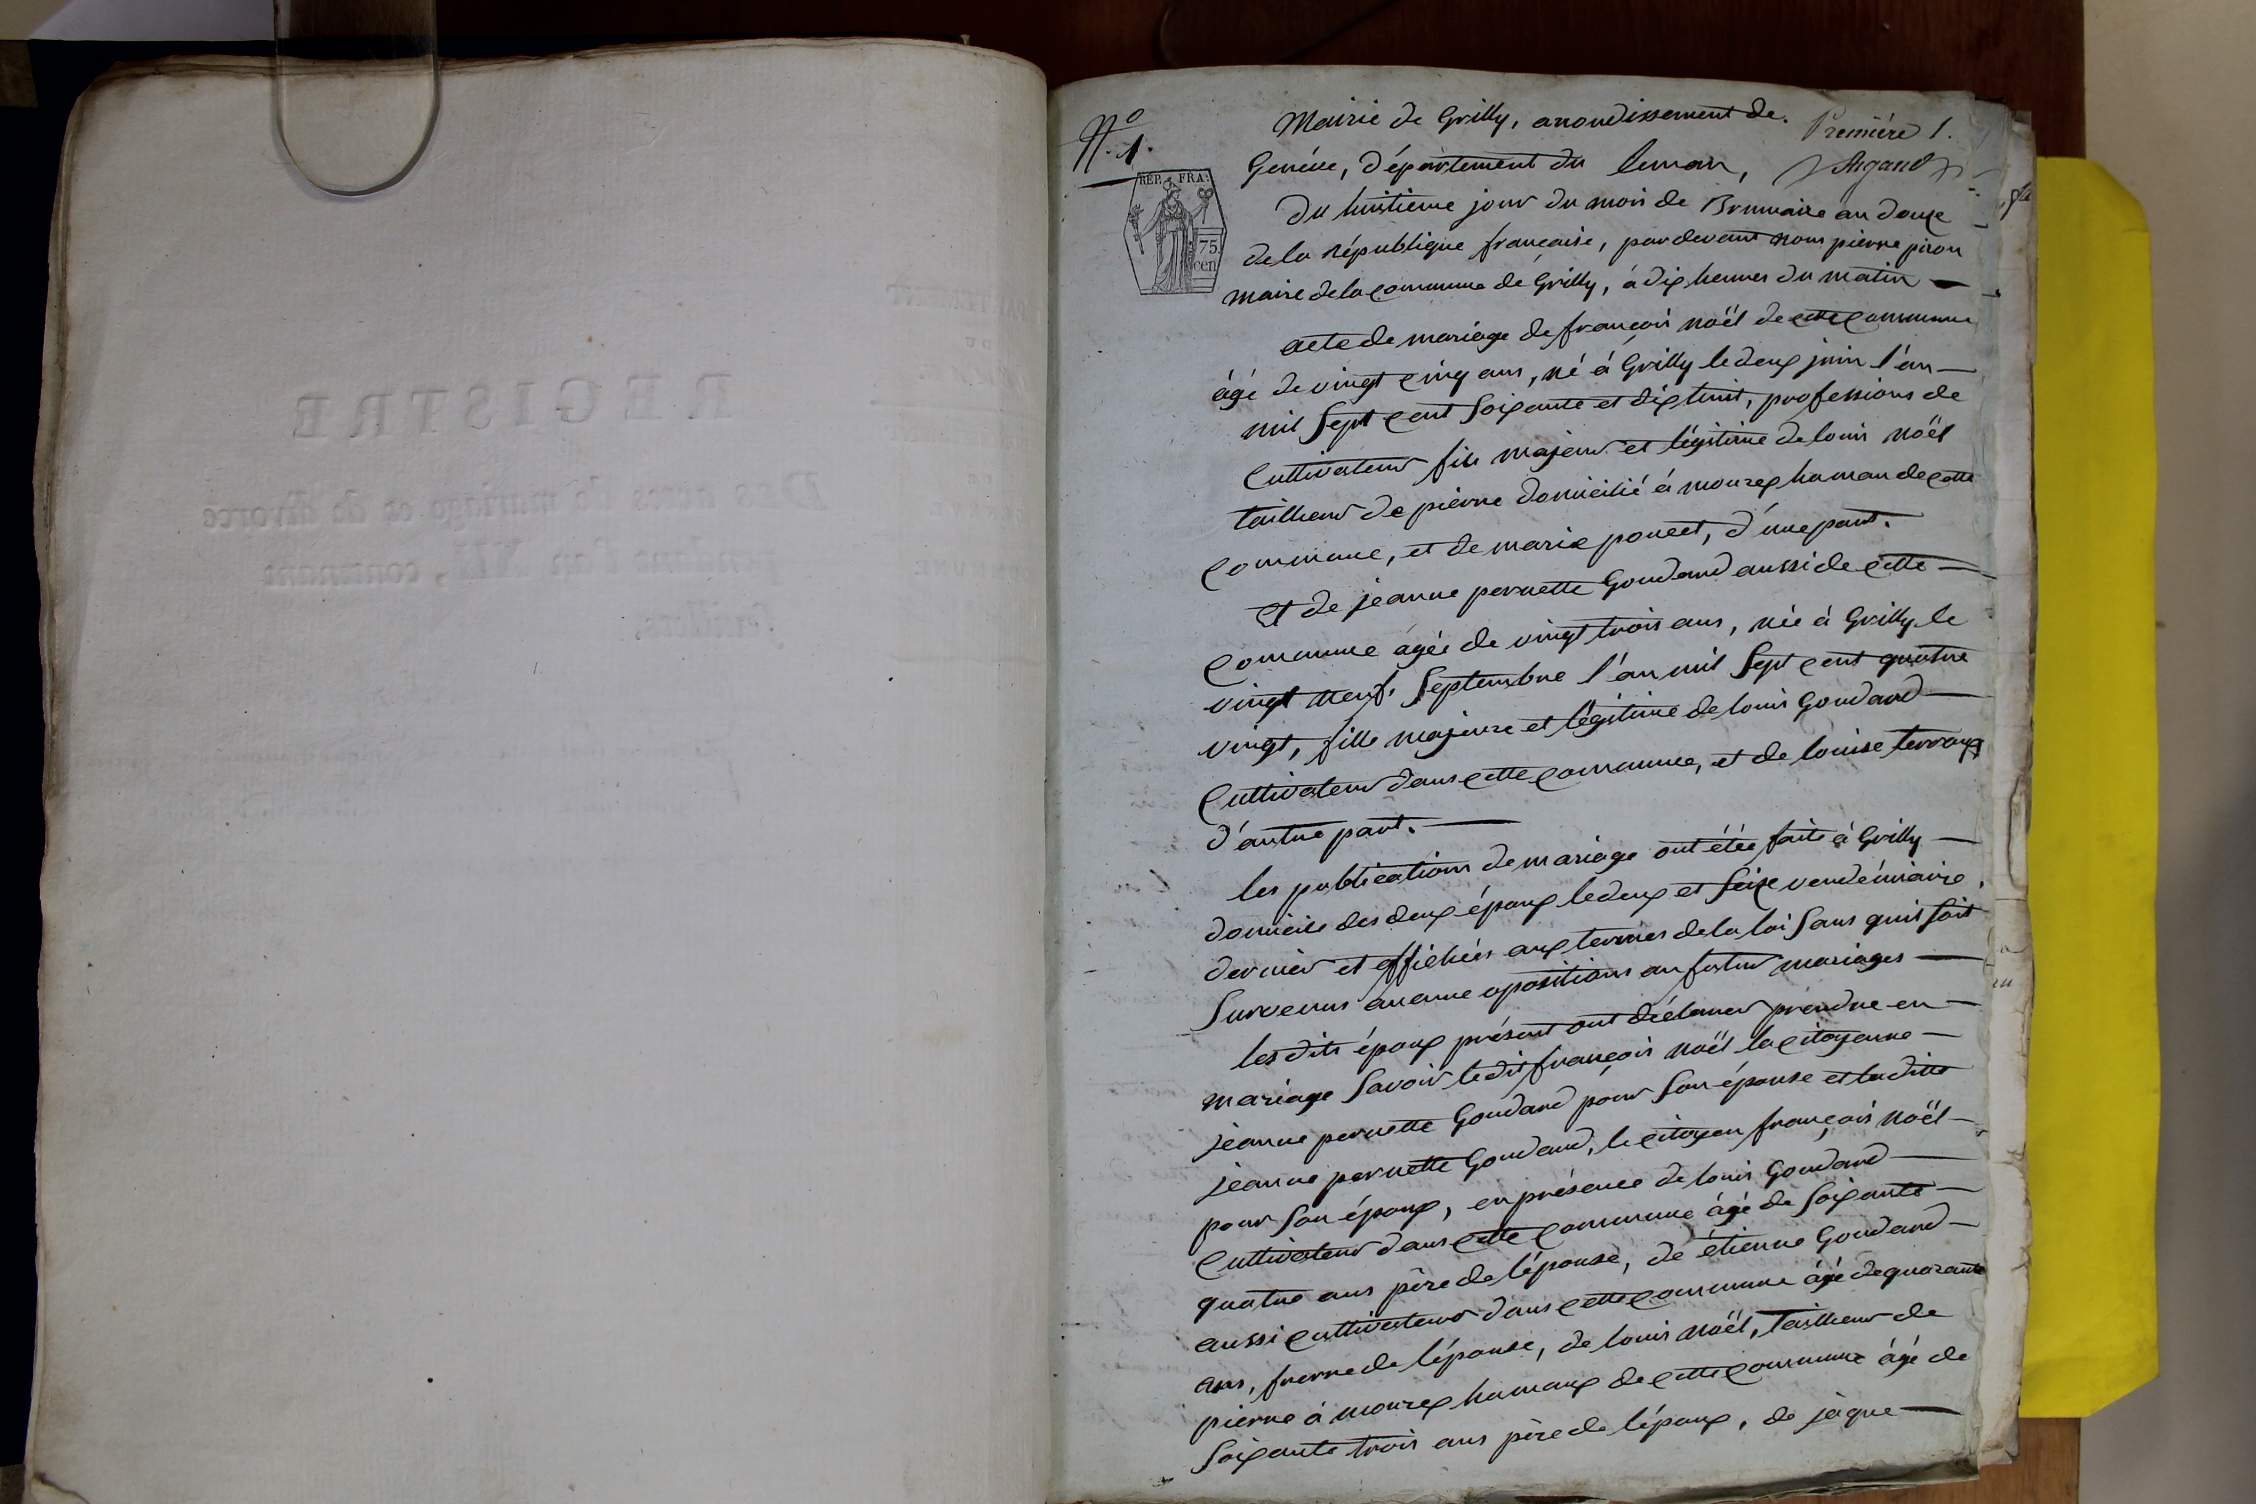 REGISTRE
Des actes de mariage et de divorce
pendant l'an XII, contenant
feuillets.
N.º 1.
Première 1.
Argand
REP. FRA.
75
cen
Mairie de Grilly, arrondissement de
Genève, département du leman,
du huitieme jour du mois de Brumaire an douze
de la république française, pardevant nous pierre piron
maire de la commune de Grilly, à dix heures du matin
acte de mariage de françois noël de cette commune
âgé de vingt cinq ans, né à Grilly le deux juin l'an
mil sept cent soixante et dix huit, professions de
Cultivateur fils majeur et légitime de louis noël
tailleur de pierre domicilié à mourex hamau de cette
commune, et de marie poncet, d'une part.
et de jeanne pernette Goudard aussi de cette
commune agée de vingt trois ans, née à Grilly le
vingt neuf Septembre l'an mil sept cent quatre
vingt, fille majeure et légitime de louis Goudard
Cultivateur dans cette commune, et de louise terroux
d'autre part.
les publications de mariage ont étée faite à Grilly
domicile des deux époux le deux et seize vendémiaire
dernier et affichées aux termes de la loi sans qu'il soit
survenus aucune opositions au futur mariages
les dits époux présent ont déclarer prendre en
mariage savoir le dit françois noël la citoyenne
jeanne pernette Goudard pour son épouse et la ditte
jeanne pernette Goudard, le citoyen françois noël
pour son époux, en présence de louis Goudard
Cultivateur dans cette commune âgé de soixante
quatre ans père de l'épouse, de étienne Goudard
aussi cultivateur dans cette commune âgé de quarante
ans, frerre de l'épouse, de louis noël, tailleur de
pierre à mourex hamaux de cette commune âgé de
soixante trois ans père de l'époux, de jâque